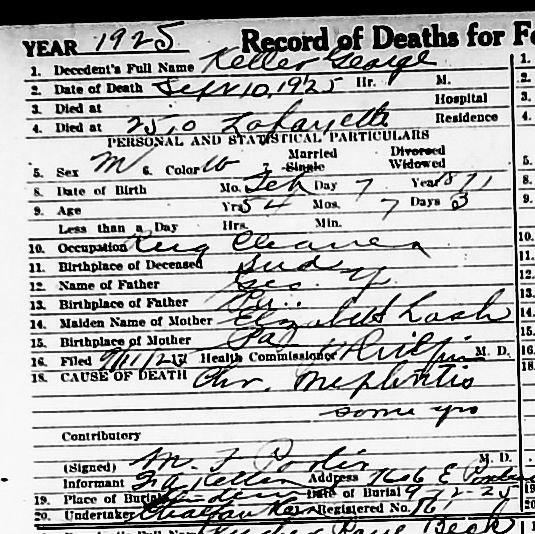 YEAR 1925 Record of Deaths for
1. Decedent's Full Name Keller George
2. Date of Death Sept 10, 1925 Hr. M.
3. Died at Hospital
4. Died at 2510 Lafayette Residence
PERSONAL AND STATISTICAL PARTICULARS
5. Sex M 6. Color W 7. Married Single Divorced Widowed
8. Date of Birth Mo. Feb Day 7 Year 1871
9. Age Yrs 54 Mos. 7 Days 3
Less than a Day Hrs. Min.
10. Occupation Rug Cleaner
11. Birthplace of Deceased Ind
12. Name of Father Geo. Y
13. Birthplace of Father Pa.
14. Maiden Name of Mother Elizabeth Lash
15. Birthplace of Mother Pa
16. Filed Health Commissioner M. D.
18. CAUSE OF DEATH Chr. Nephritis
some yrs
Contributory
(Signed) M. F. M. D.
Informant Keller Address 1606 E
19. Place of Burial Linden Date of Burial 9-12-25
20. Undertaker Registered No. 861
Beck